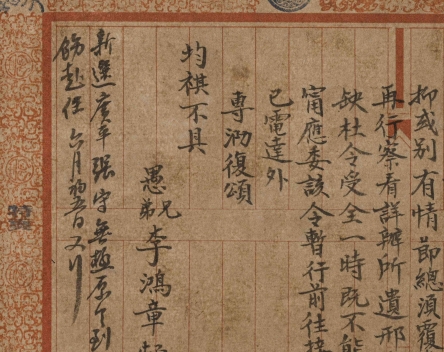 抑或別有情節總須覆
再行察看詳辦所遺邢
缺杜令受全一時既不能
甯應委該令暫行前往接
已電達外
專泐復頌
均祺不具
愚兄弟李鴻章頓
新選廣平張守無極原令到
飭赴任 六月初五日又行